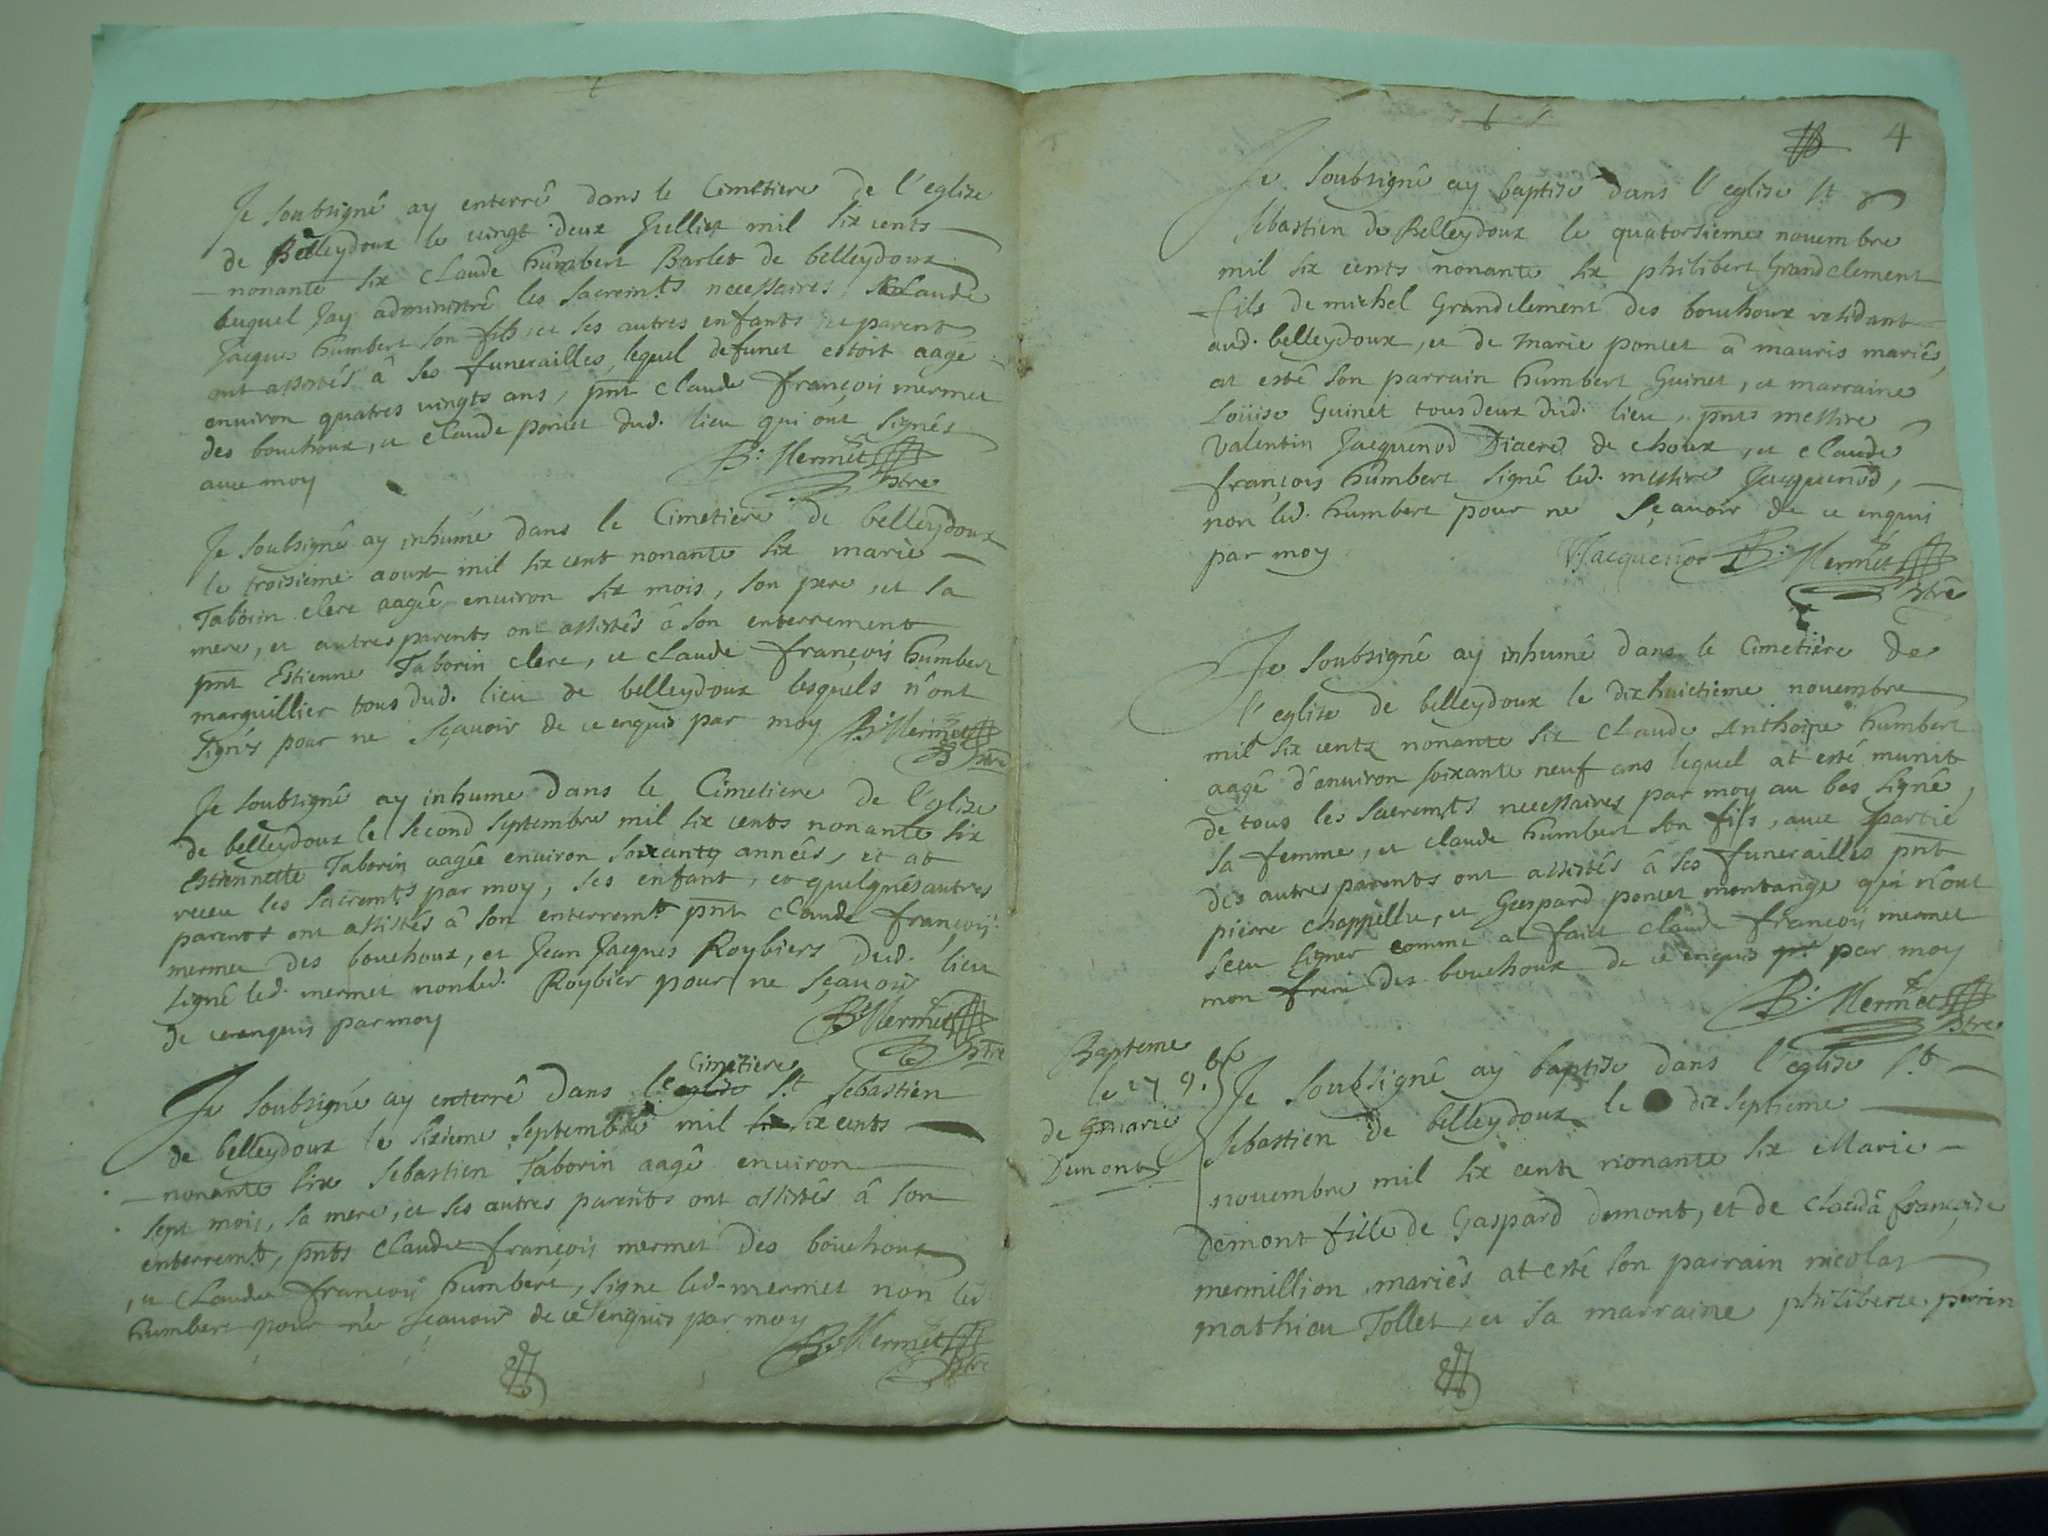 Je soubsignê ay enterrê dans le Cimetiere de l'eglise
de Belleydoux le vingt deux Julliet mil six cents
nonante six Claude humbert Barlet de belleydoux
auquel Jay administrê les sacremts necessaires, Claude
Jacques humbert son fils, et ses autres enfants et parents
ont assistés â ses funerailles, lequel defunct estoit aagê
environ quatres vingts ans, pnt Claude françois mermet
des bouchoux, et Claude poncet dud. lieu qui ont signés
avec moy
B. Mermet ptre
Je soubsignê ay inhúmé dans le Cimetiere de belleydoux
le troisieme aoust mil six cent nonante six marie
Taborin clerc aagêe environ six mois, son pere, et sa
mere, et autres parents ont assistês â son enterrement
pnt Estienne Taborin clerc, et claude françois humbert
marguillier tous dud. lieu de belleydoux lesquels n'ont
signés pour ne sçavoir de ce enquis par moy B. Mermet
ptre
Je soubsignê ay inhume dans le Cimetiere de l'eglise
de belleydoux le second septembre mil six cents nonante six
Estiennette Taborin aagêe environ soixante annêes, et at
receu les sacremts par moy, ses enfant, et quelques autres
parents ont assistés â son enterremt pnt Claude françois
mermet des bouchoux, et Jean Jacques Roybiers dud. lieu
signê led. mermet non led. Roybier pour ne sçavoir
de ce enquis par moy
B. Mermet
ptre
Cimetiere
Je soubsigné ay enterrê dans le eglise St Sebastien
de belleydoux le sixieme septembre mil six six cents
nonante six Sebastien Taborin aagê environ
sept mois, sa mere, et ses autres parents ont assistês â son
enterremt, pnts Claude françois mermet des bouchoux
, et Claude françois humbert, signe led. mermet non led
humbert pour ne sçavoir de ce enquis par moy
B. Mermet
ptre
4
Je soubsignê ay baptise dans l'eglise St
Sebastien de Belleydoux le quatorsieme novembre
mil six cents nonante six philibert Grandclement
fils de michel Grandclement des bouchoux residant
aud. belleydoux, et de Marie poncet â mauris mariês,
at estê son parrain humbert Guinet, et marraine
Loüise Guinet tous deux dud. lieu, pnts messire
Valentin Jacquenod Diacre de choux, et Claude
françois humbert signê led. messire Jacquenod,
non led. humbert pour ne sçavoir de ce enquis
par moy
VJacquenod B. Mermet
ptre
Je soubsignê ay inhumê dans le Cimetière de
l'eglise de belleydoux le dixhuictieme novembre
mil six cents nonante six Claude Anthoine humbert
aagê d'environ soixante neuf ans lequel at esté munit
de tous les sacremts necessaires par moy au bas signê,
sa femme, et claude humbert son fils, avec partie
des autres parents ont assistês â ses funerailles pnt
pierre chappellu, et Gaspard poncet montange qui n'ont
sceu signer comme at fait claude françois mermet
mon frere des bouchoux de ce enquis par moy
B. Mermet
ptre
Bapteme
le 27 9.bre
de marie
Demont
Je soubsignê ay baptise dans l'eglise St
Sebastien de belleydoux le dix septieme
novembre mil six cents nonante six Marie
demont fille de Gaspard demont, et de Clauda françoise
mermillion mariês at esté son parrain nicolas
mathieu Tollet, et sa marraine philiberte perrin